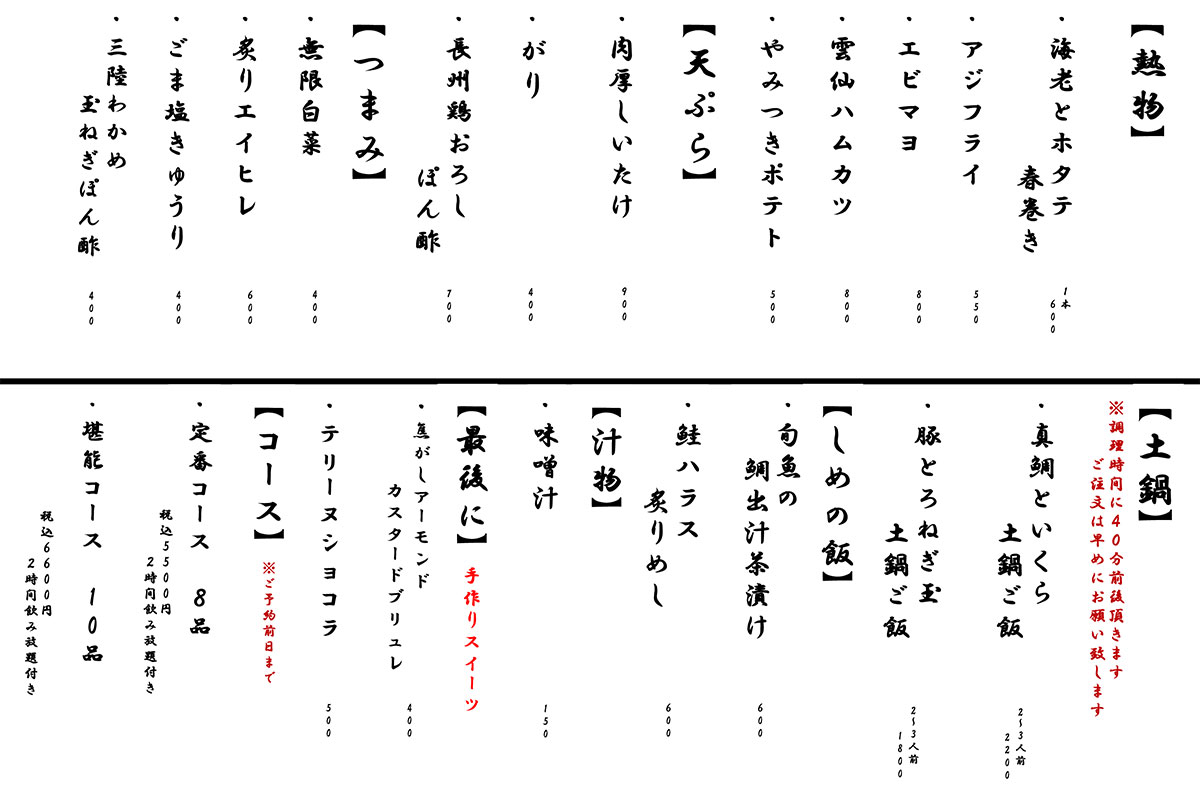 【熱物】
・海老とホタテ
春巻き
1本
600
・アジフライ
550
・エビマヨ
800
・雲仙ハムカツ
800
・やみつきポテト
500
【天ぷら】
・肉厚しいたけ
900
・がり
400
・長州鶏おろし
ぽん酢
700
【つまみ】
・無限白菜
400
・炙りエイヒレ
600
・ごま塩きゅうり
400
・三陸わかめ
玉ねぎぽん酢
400
【土鍋】
※調理時間に40分前後頂きます
ご注文は早めにお願い致します
・真鯛といくら
土鍋ご飯
2〜3人前
2200
・豚とろねぎ玉
土鍋ご飯
2〜3人前
1800
【しめの飯】
・旬魚の
鯛出汁茶漬け
600
・鮭ハラス
炙りめし
600
【汁物】
・味噌汁
150
【最後に】手作りスイーツ
・焦がしアーモンド
カスタードブリュレ
400
・テリーヌショコラ
500
【コース】※ご予約前日まで
・定番コース 8品
税込5500円
2時間飲み放題付き
・堪能コース 10品
税込6600円
2時間飲み放題付き